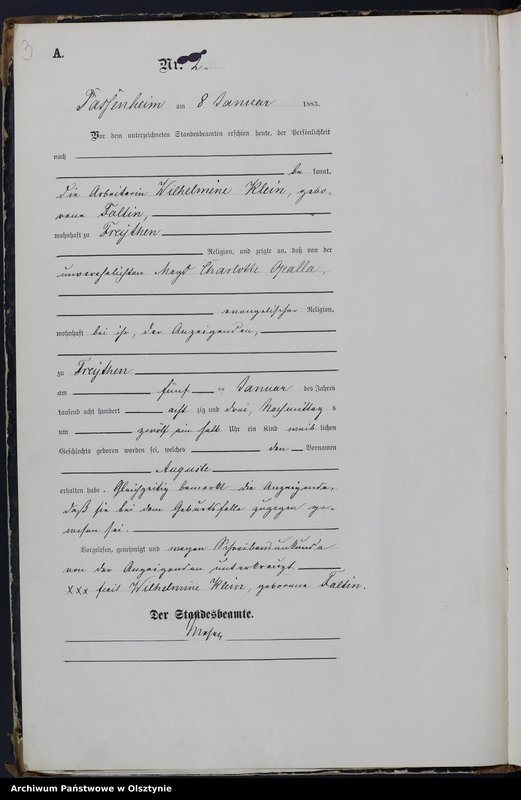 3
A.
Nr. 2.
Passenheim am 8 Januar 1883.
Vor dem unterzeichneten Standesbeamten erschien heute, der Persönlichkeit
nach
be kannt,
die Arbeiterin Wilhelmine Klein, gebo-
rene Foltin,
wohnhaft zu Freythen
Religion, und zeigte an, daß von der
unverehelichten Magd Charlotte Opalla,
evangelischer Religion,
wohnhaft bei ihr, der Anzeigenden,
zu Freythen
am fünf ten Januar des Jahres
tausend acht hundert acht zig und drei, Nachmittag s
um zwölf ein halb Uhr ein Kind weib lichen
Geschlechts geboren worden sei, welches den Vornamen
Auguste
erhalten habe. Gleichzeitig bemerkt die Anzeigende,
daß sie bei dem Geburtsfalle zugegen ge-
wesen sei.
Vorgelesen, genehmigt und wegen Schreibensunkunde
von der Anzeigenden unterkreuzt
xxx heißt Wilhelmine Klein, geborene Foltin.
Der Standesbeamte.
Archiwum Państwowe w Olsztynie